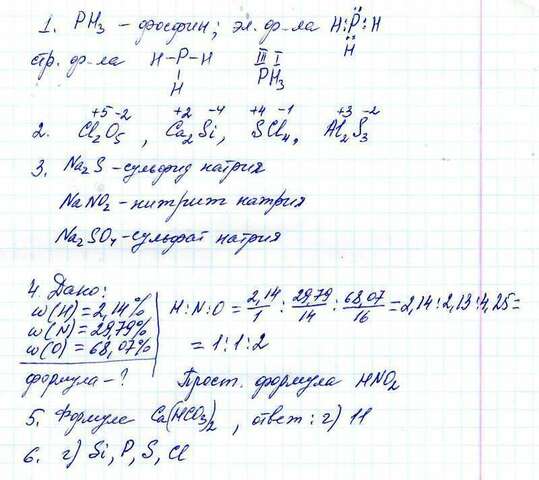 1. PH₃ – фосфин; эл. ф-ла H:P:H
H
стр. ф-ла H–P–H III I
H PH₃
+5 -2 +2 -4 +4 -1 +3 -2
2. Cl₂O₅, Ca₂Si, SCl₄, Al₂S₃
3. Na₂S – сульфид натрия
NaNO₂ – нитрит натрия
Na₂SO₄ – сульфат натрия
4. Дано:
w(H) = 2,14%
w(N) = 29,79%
w(O) = 68,07%
формула – ?
H:N:O = 2,14/1 : 29,79/14 : 68,07/16 = 2,14:2,13:4,25 =
= 1:1:2
Прост. формула HNO₂
5. Формула Ca(HCO₃)₂, ответ: г) 11
6. г) Si, P, S, Cl